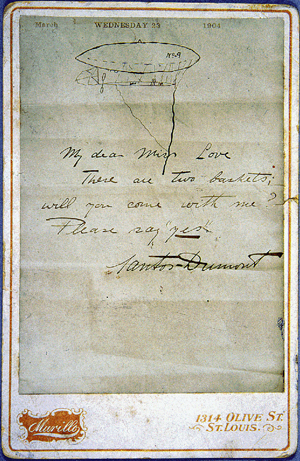 March WEDNESDAY 23 1904
No9
My dear Miss Love
There are two baskets;
will you come with me?
Please say "yes"
Santos=Dumont
Murillo
1314 OLIVE ST.
ST. LOUIS.